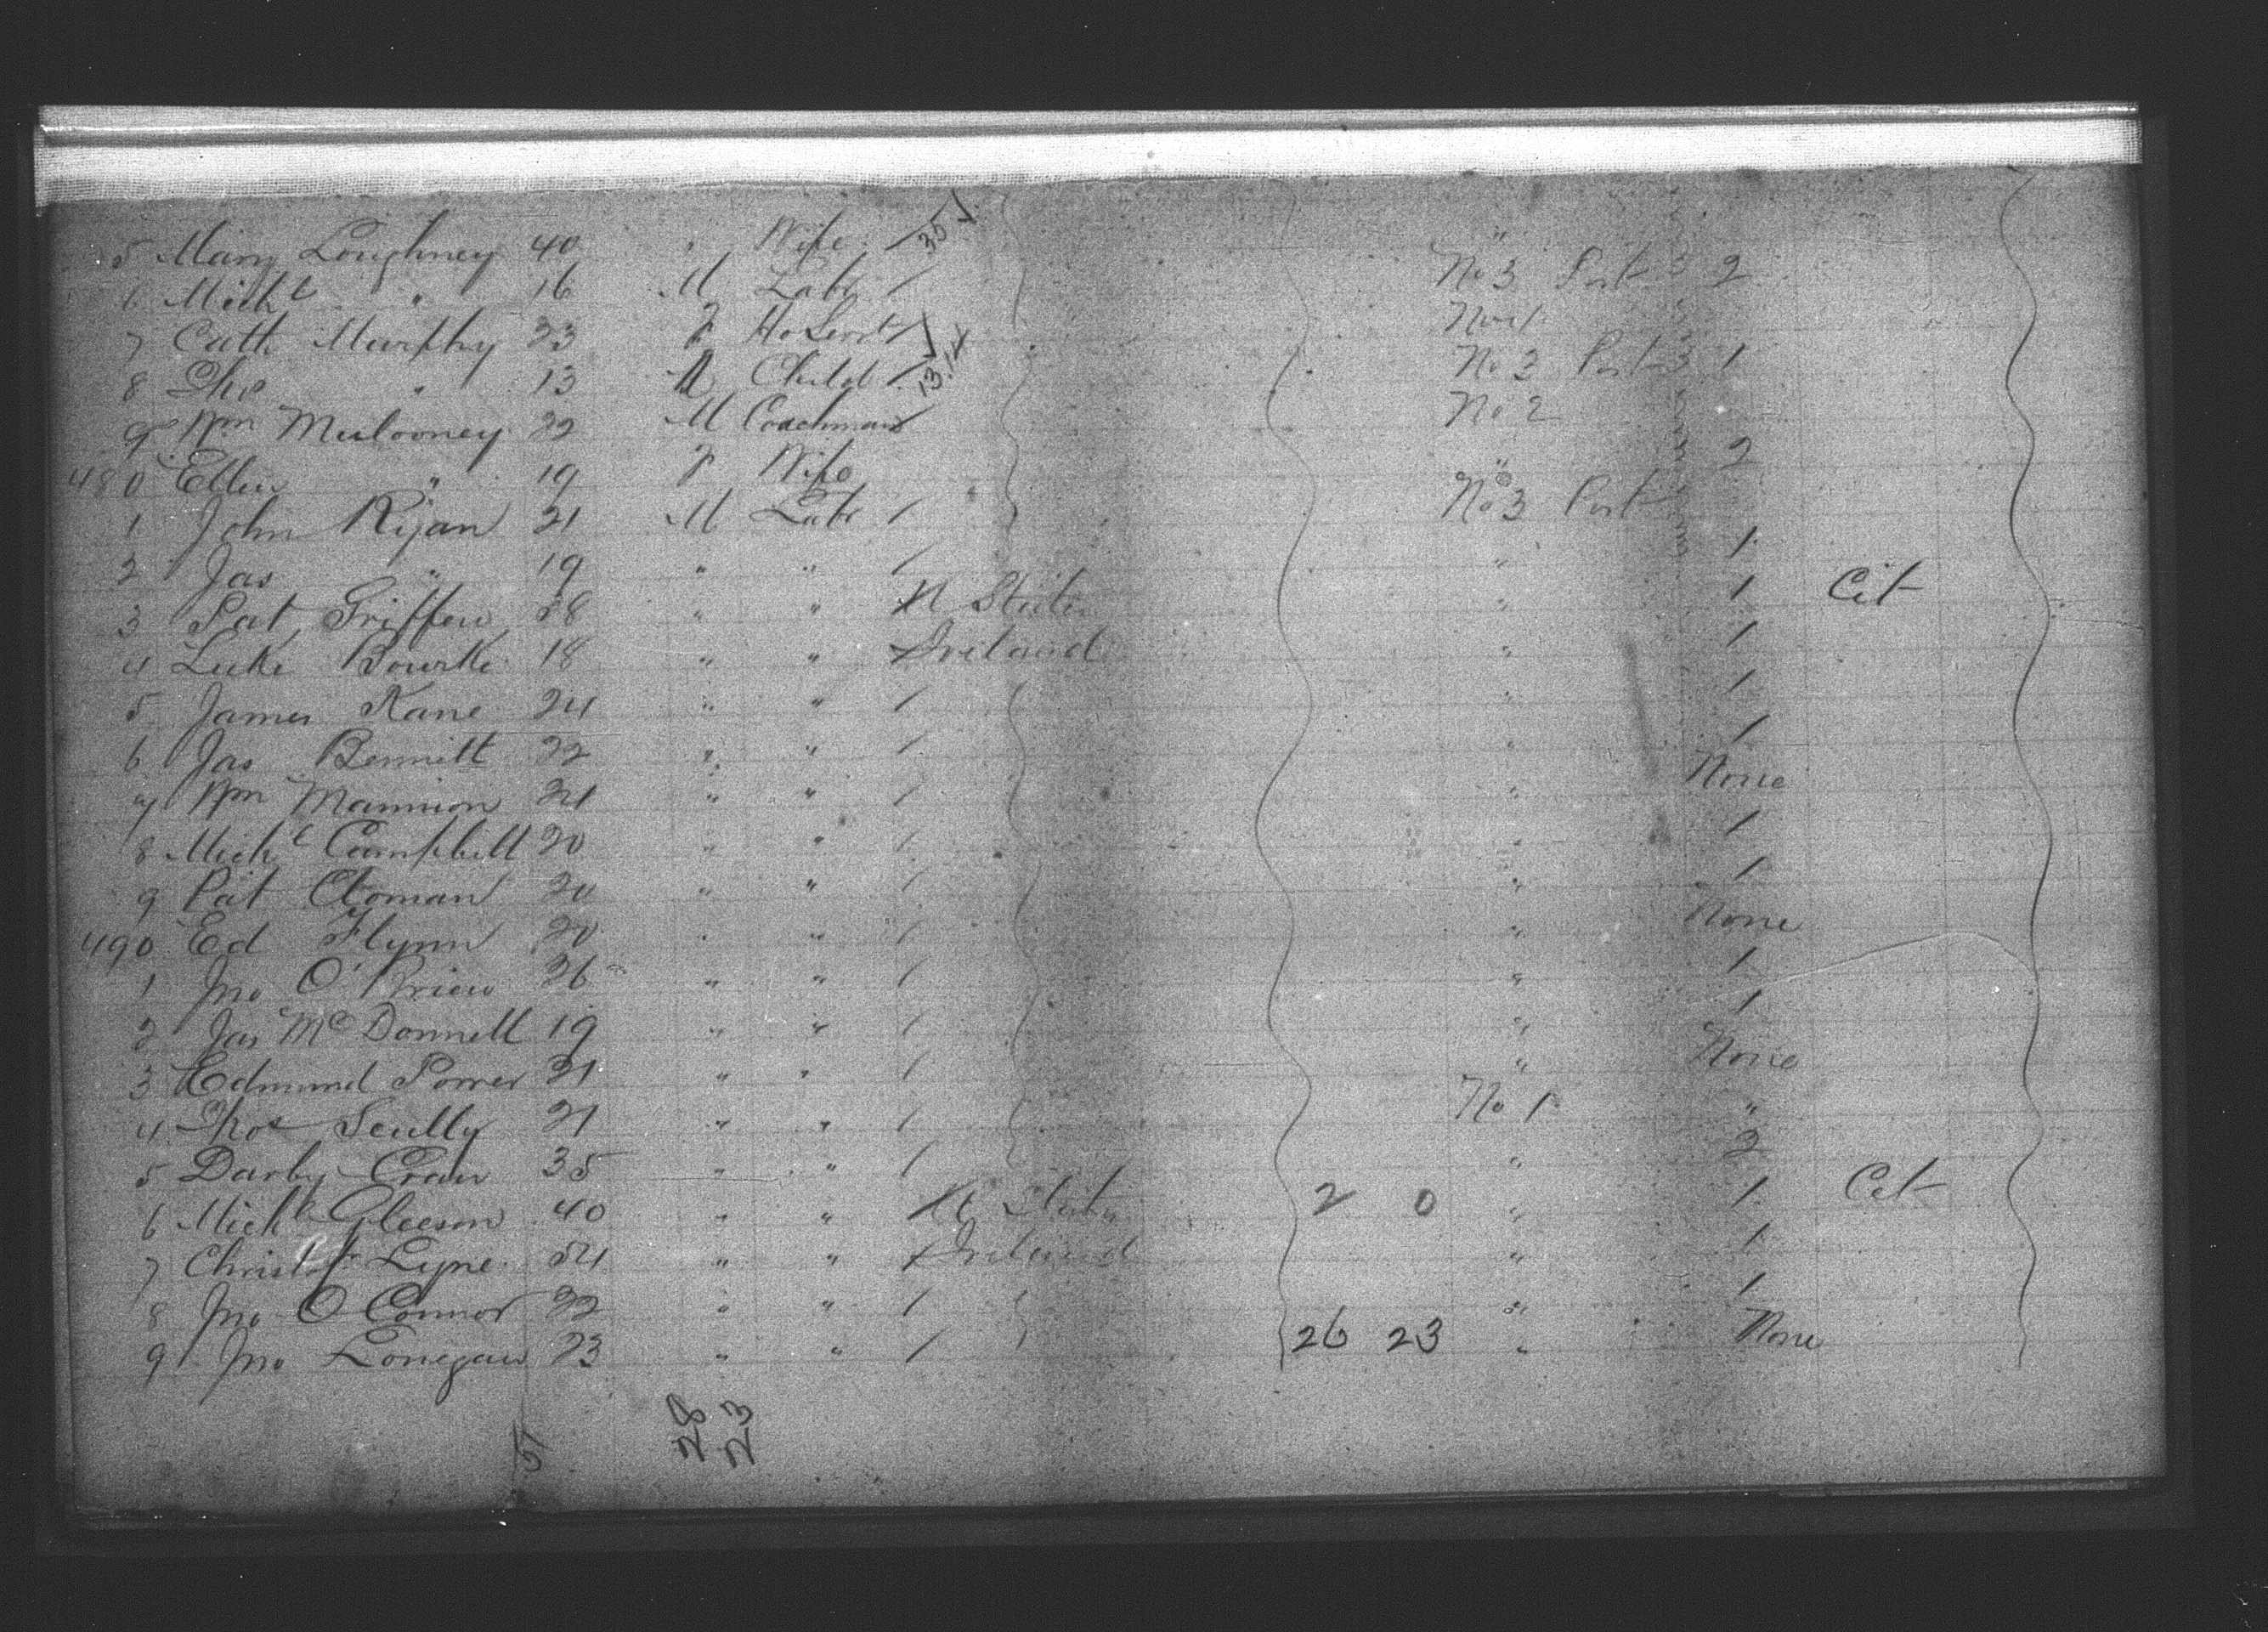 5 Mary Loughney 40 " Wife / 35 / "
6 Michl " 16 M Labr / No 3 Port 2
7 Cath Murphy 23 F Ho Servt / No 1
8 Thos " 13 M Child / 13.14 No 3 Port 1
9 Wm Mulooney 22 M Coachman No 2
480 Ellen " 19 F Wife " 2
1 John Ryan 21 M Labr / No 3 Port
2 Jas " 19 " " / " 1
3 Pat Griffen 28 " " U States " 1 Cit
4 Luke Bourke 18 " " Ireland " 1
5 James Kane 24 " " / " 1
6 Jas Bennett 22 " " / " 1
7 Wm Mannion 21 " " / " None
8 Michl Campbell 20 " " / " 1
9 Pat 20 " " / " 1
490 Ed Flynn 20 " " / " None
1 Jno O'Brien 26 " " / " 1
2 Jas McDonnell 19 " " / " 1
3 Edmund Power 21 " " / " None
4 Thos Scully 21 " " / No 1 "
5 Darby 35 " " / " 2
6 Michl Gleeson 40 " " U States 2 0 " 1 Cit
7 Lyne 24 " " Ireland " 1
8 Jno O Connor 22 " " / " 1
9 Jno Lonegan 23 " " / 26 23 " None
51 28
23